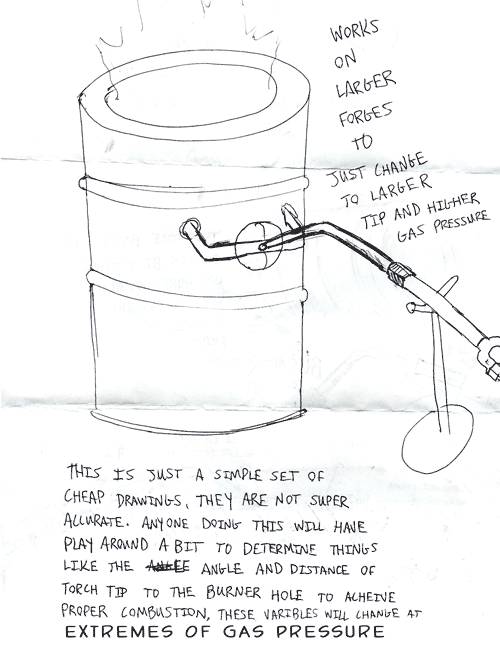 WORKS
ON
LARGER
FORGES
TO
JUST CHANGE
TO LARGER
TIP AND HIGHER
GAS PRESSURE
THIS IS JUST A SIMPLE SET OF
CHEAP DRAWINGS, THEY ARE NOT SUPER
ACCURATE. ANYONE DOING THIS WILL HAVE
PLAY AROUND A BIT TO DETERMINE THINGS
LIKE THE ANGLE AND DISTANCE OF
TORCH TIP TO THE BURNER HOLE TO ACHEIVE
PROPER COMBUSTION, THESE VARIBLES WILL CHANGE AT
EXTREMES OF GAS PRESSURE